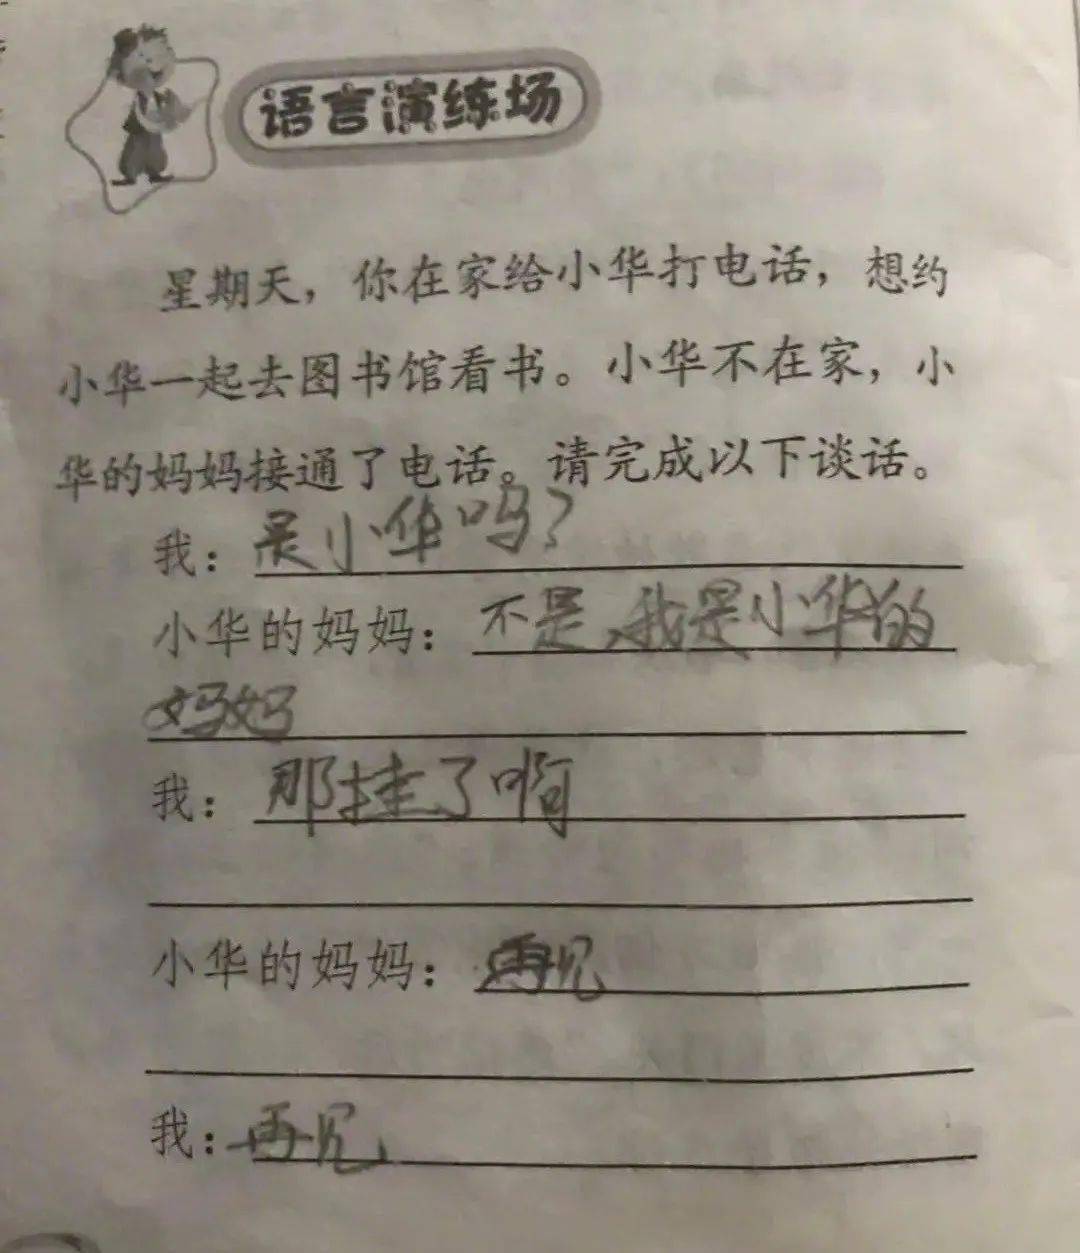 语言演练场
星期天，你在家给小华打电话，想约
小华一起去图书馆看书。小华不在家，小
华的妈妈接通了电话。请完成以下谈话。
我：是小华吗？
小华的妈妈：不是，我是小华的
妈妈
我：那挂了啊
小华的妈妈：再见
我：再见